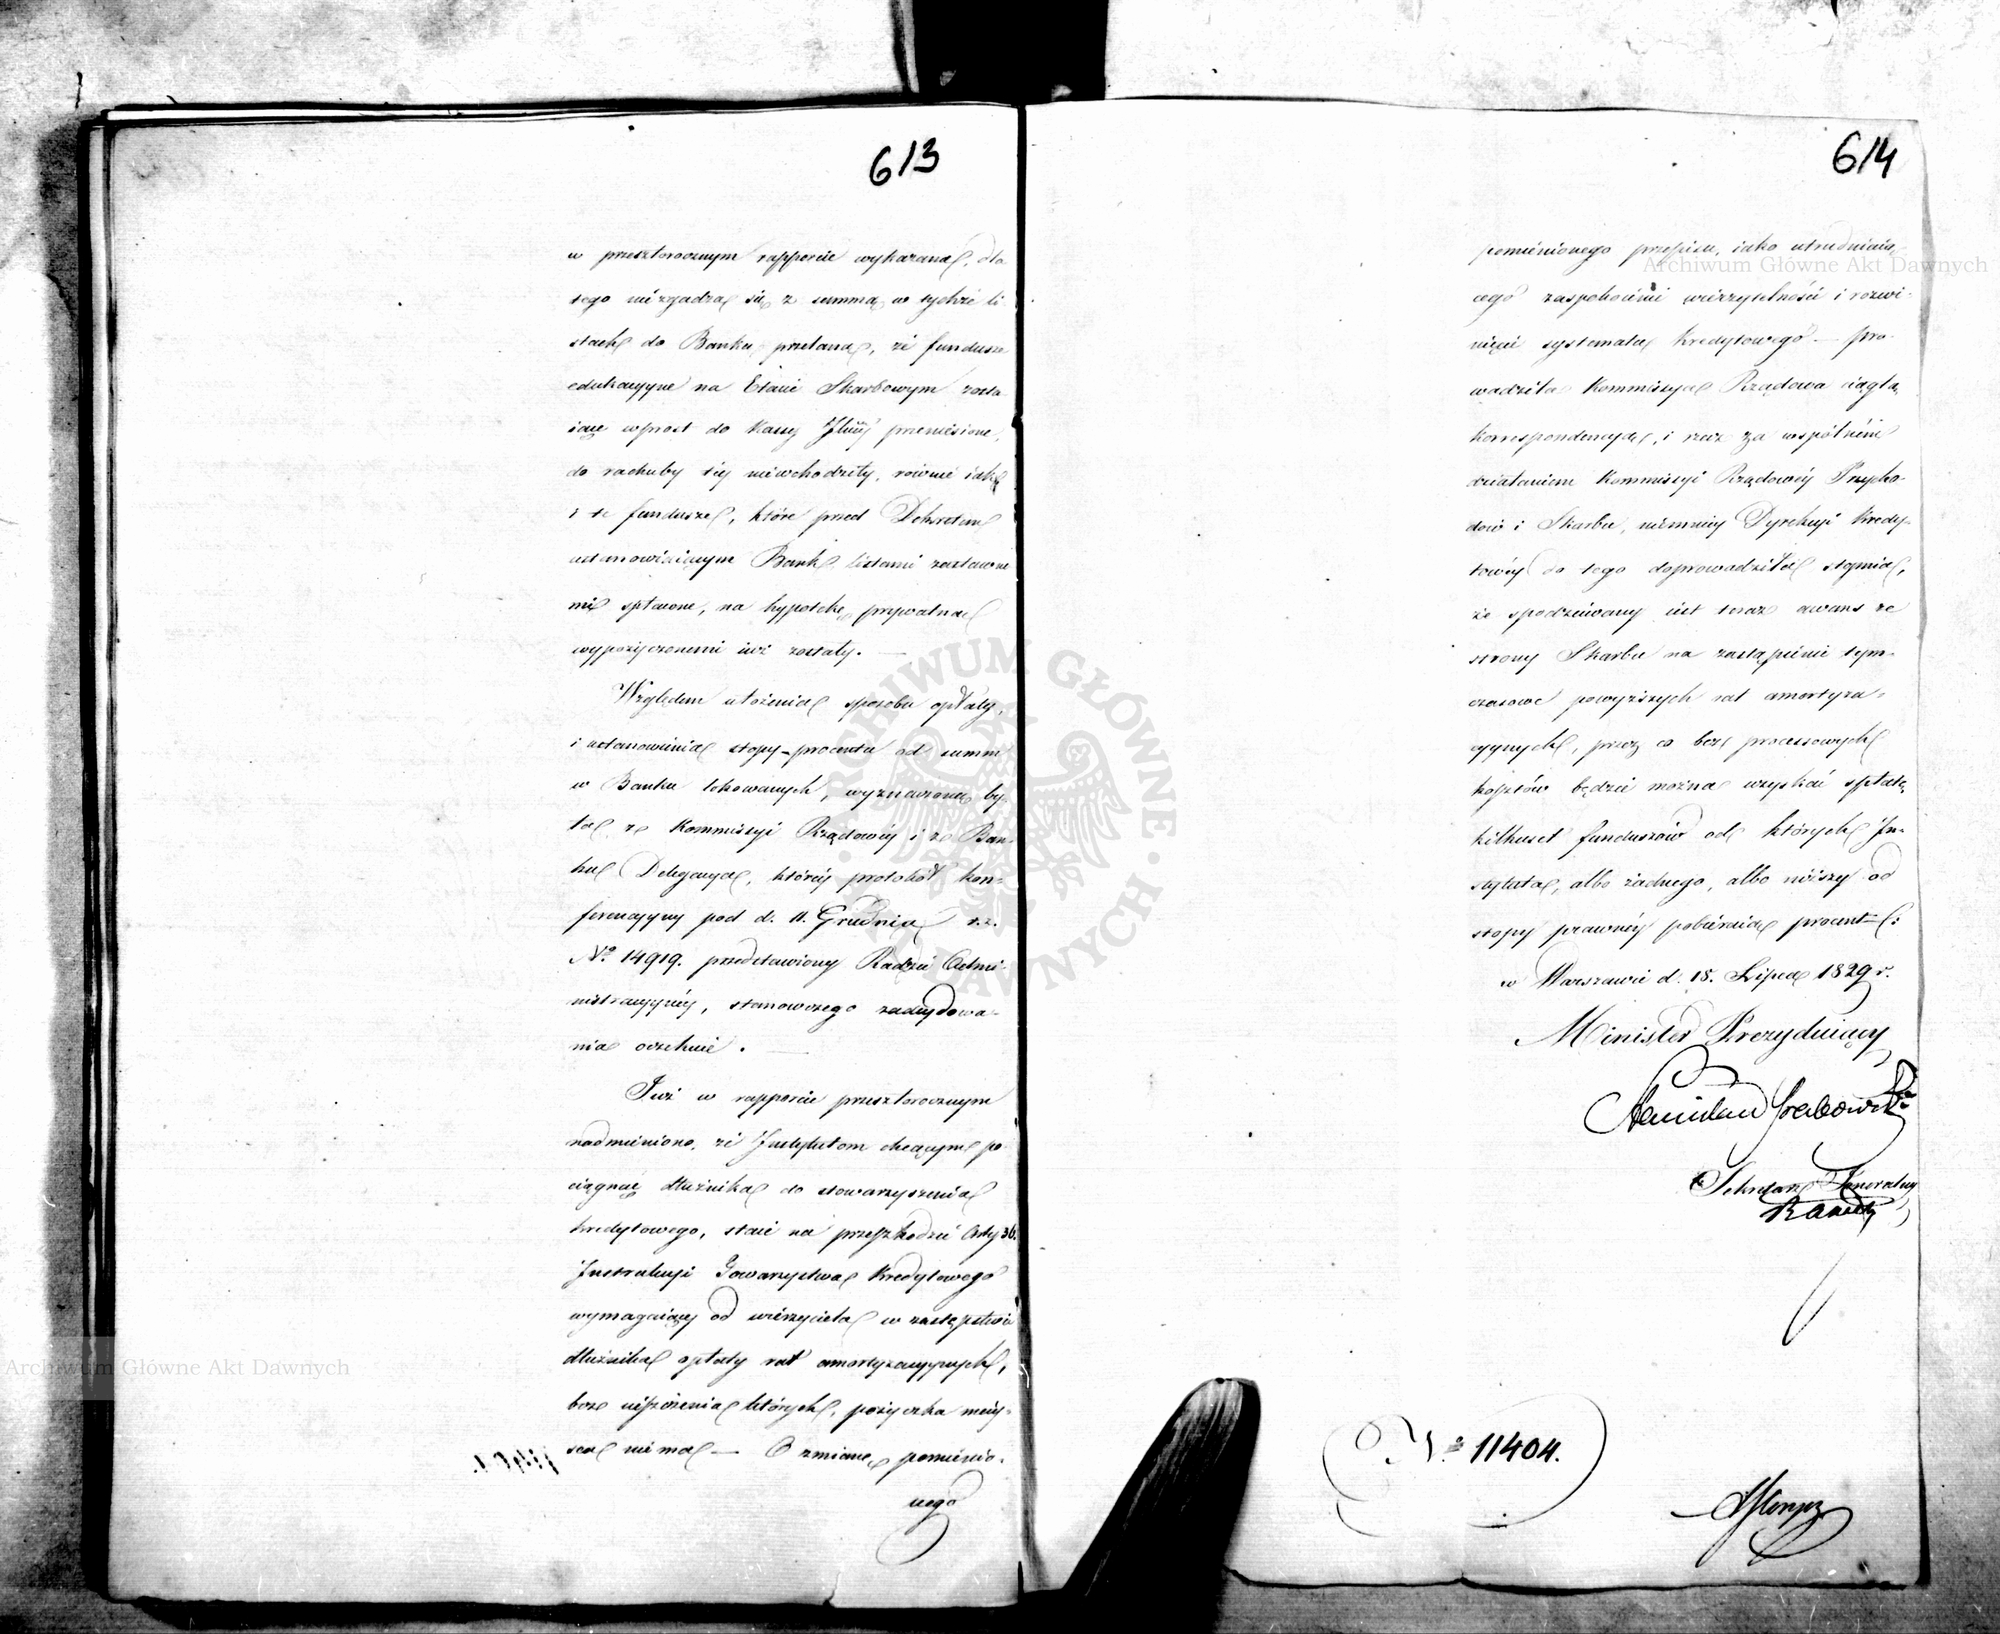 613
w przeszłorocznym rapporcie wykazana, dla
tego niezgadza się z summą w tychże li-
stach do Banku przelaną, że fundusze
edukacyjne na Etacie Skarbowym zosta
iące wprost do Kassy przeniesione,
do rachuby téy niewchodziły, równie iak
i te fundusze, które przed Dekretem
ustanowiaiącym Bank listami zastawne
mi spłacone, na hypotekę prywatną
wypożyczonemi iuż zostały. —
Względem ułożenia sposobu opłaty,
i ustanowienia stopy procentu od summ
w Banku lokowanych, wyznaczona by-
ła ze Kommissyi Rządowéy i ze Ban-
ku Delegacya, któréy protokół kon-
ferencyjny pod d. 11. Grudnia r. z.
No 14919. przedstawiony Radzie Admi-
nistracyjnéy, stanowczego zadecydowa-
nia oczekuie. —
Iuż w rapporcie przeszłorocznym
nadmieniono, że Instytutom chcącym po
ciągnąć dłużnika do stowarzyszenia
kredytowego, staie na przeszkodzie Arty 36.
Instrukcyi Towarzystwa Kredytowego
wymagaiący od wierzyciela w zastępstwie
dłużnika opłaty rat amortyzacyjnych,
bez uiszczenia których, pożyczka miey-
sca nie ma — O zmianę pomienio-
nego
614
pomienionego przepisu, iako utrudniaią-
cego zaspokoienie wierzytelności i rozwi-
nięcie systematu kredytowego — pro-
wadziła Kommissya Rządowa ciągłą
korrespondencyą, i rzecz za wspólnem
działaniem Kommissyi Rządowéy Przycho-
dów i Skarbu, niemniey Dyrekcyi Kredy-
towéy do tego doprowadziła stopnia,
że spodziewany iest teraz awans ze
strony Skarbu na zastąpienie tym-
czasowe powyższych rat amortyza-
cyjnych, przez co bez processowych
kosztów będzie można uzyskać spłatę
kilkuset funduszów od których In-
stytuta, albo żadnego, albo niższy od
stopy prawnéy pobieraią procent:
w Warszawie d. 18. Lipca 1829 r.
Minister Prezyduiący
Stanisław Grabowski
Sekretarz Jeneralny
No 11404.
Archiwum Główne Akt Dawnych
Archiwum Główne Akt Dawnych
ARCHIWUM GŁÓWNE AKT DAWNYCH